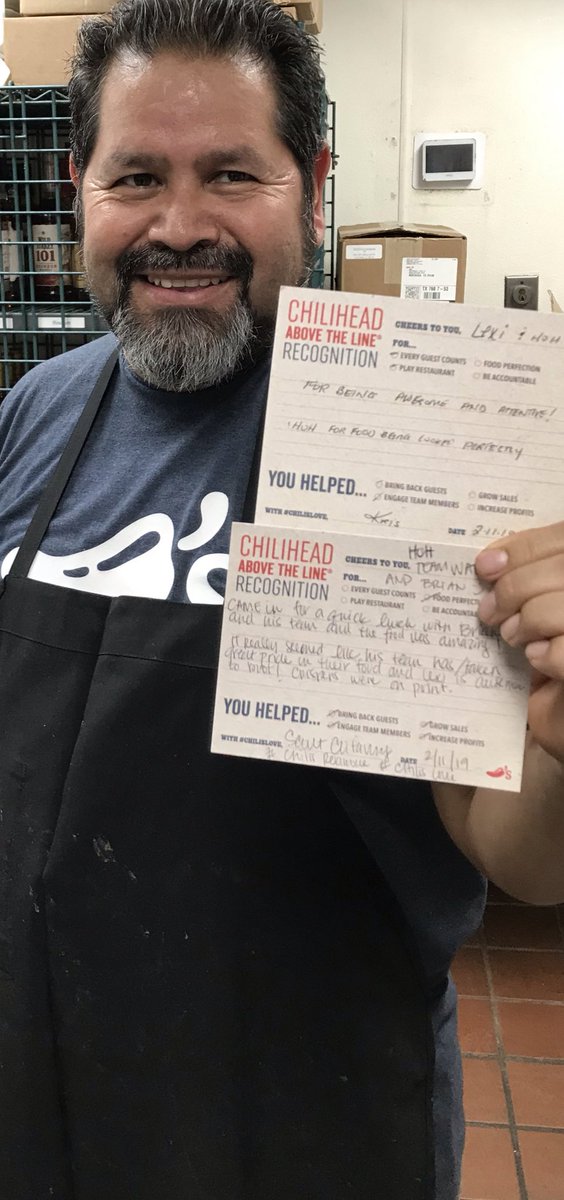 101
CHILIHEAD
ABOVE THE LINE®
RECOGNITION
CHEERS TO YOU, Lexi & HOH
FOR...
EVERY GUEST COUNTS
FOOD PERFECTION
PLAY RESTAURANT
BE ACCOUNTABLE
FOR BEING AWESOME AND ATTENTIVE!
HOH FOR FOOD BEING COOKED PERFECTLY
YOU HELPED...
BRING BACK GUESTS
GROW SALES
ENGAGE TEAM MEMBERS
INCREASE PROFITS
WITH #CHILISLOVE, Kris
DATE 2-11-19
CHILIHEAD
ABOVE THE LINE®
RECOGNITION
HOH
CHEERS TO YOU, TEAM
AND BRIAN
FOR...
EVERY GUEST COUNTS
FOOD PERFECTION
PLAY RESTAURANT
BE ACCOUNTABLE
CAME IN for a quick lunch with Brian
and his team and the food was amazing!
It really seemed like his team has/takes
great pride in their food and Lexi is awesome
to boot! Crispers were on point.
YOU HELPED...
BRING BACK GUESTS
GROW SALES
ENGAGE TEAM MEMBERS
INCREASE PROFITS
WITH #CHILISLOVE, Scout
DATE 2/11/19
# Chilis # Chilis Love
's